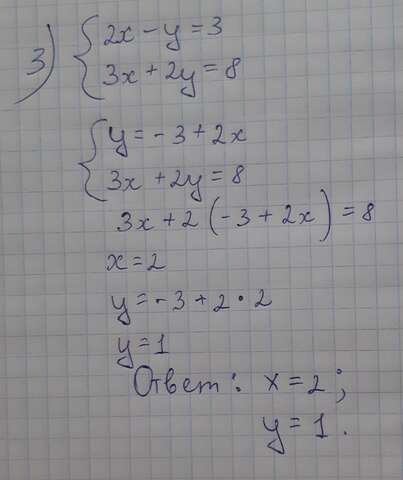 3) { 2x - y = 3
3x + 2y = 8
{ y = - 3 + 2x
3x + 2y = 8
3x + 2 (- 3 + 2x) = 8
x = 2
y = - 3 + 2 · 2
y = 1
Ответ: x = 2;
y = 1.